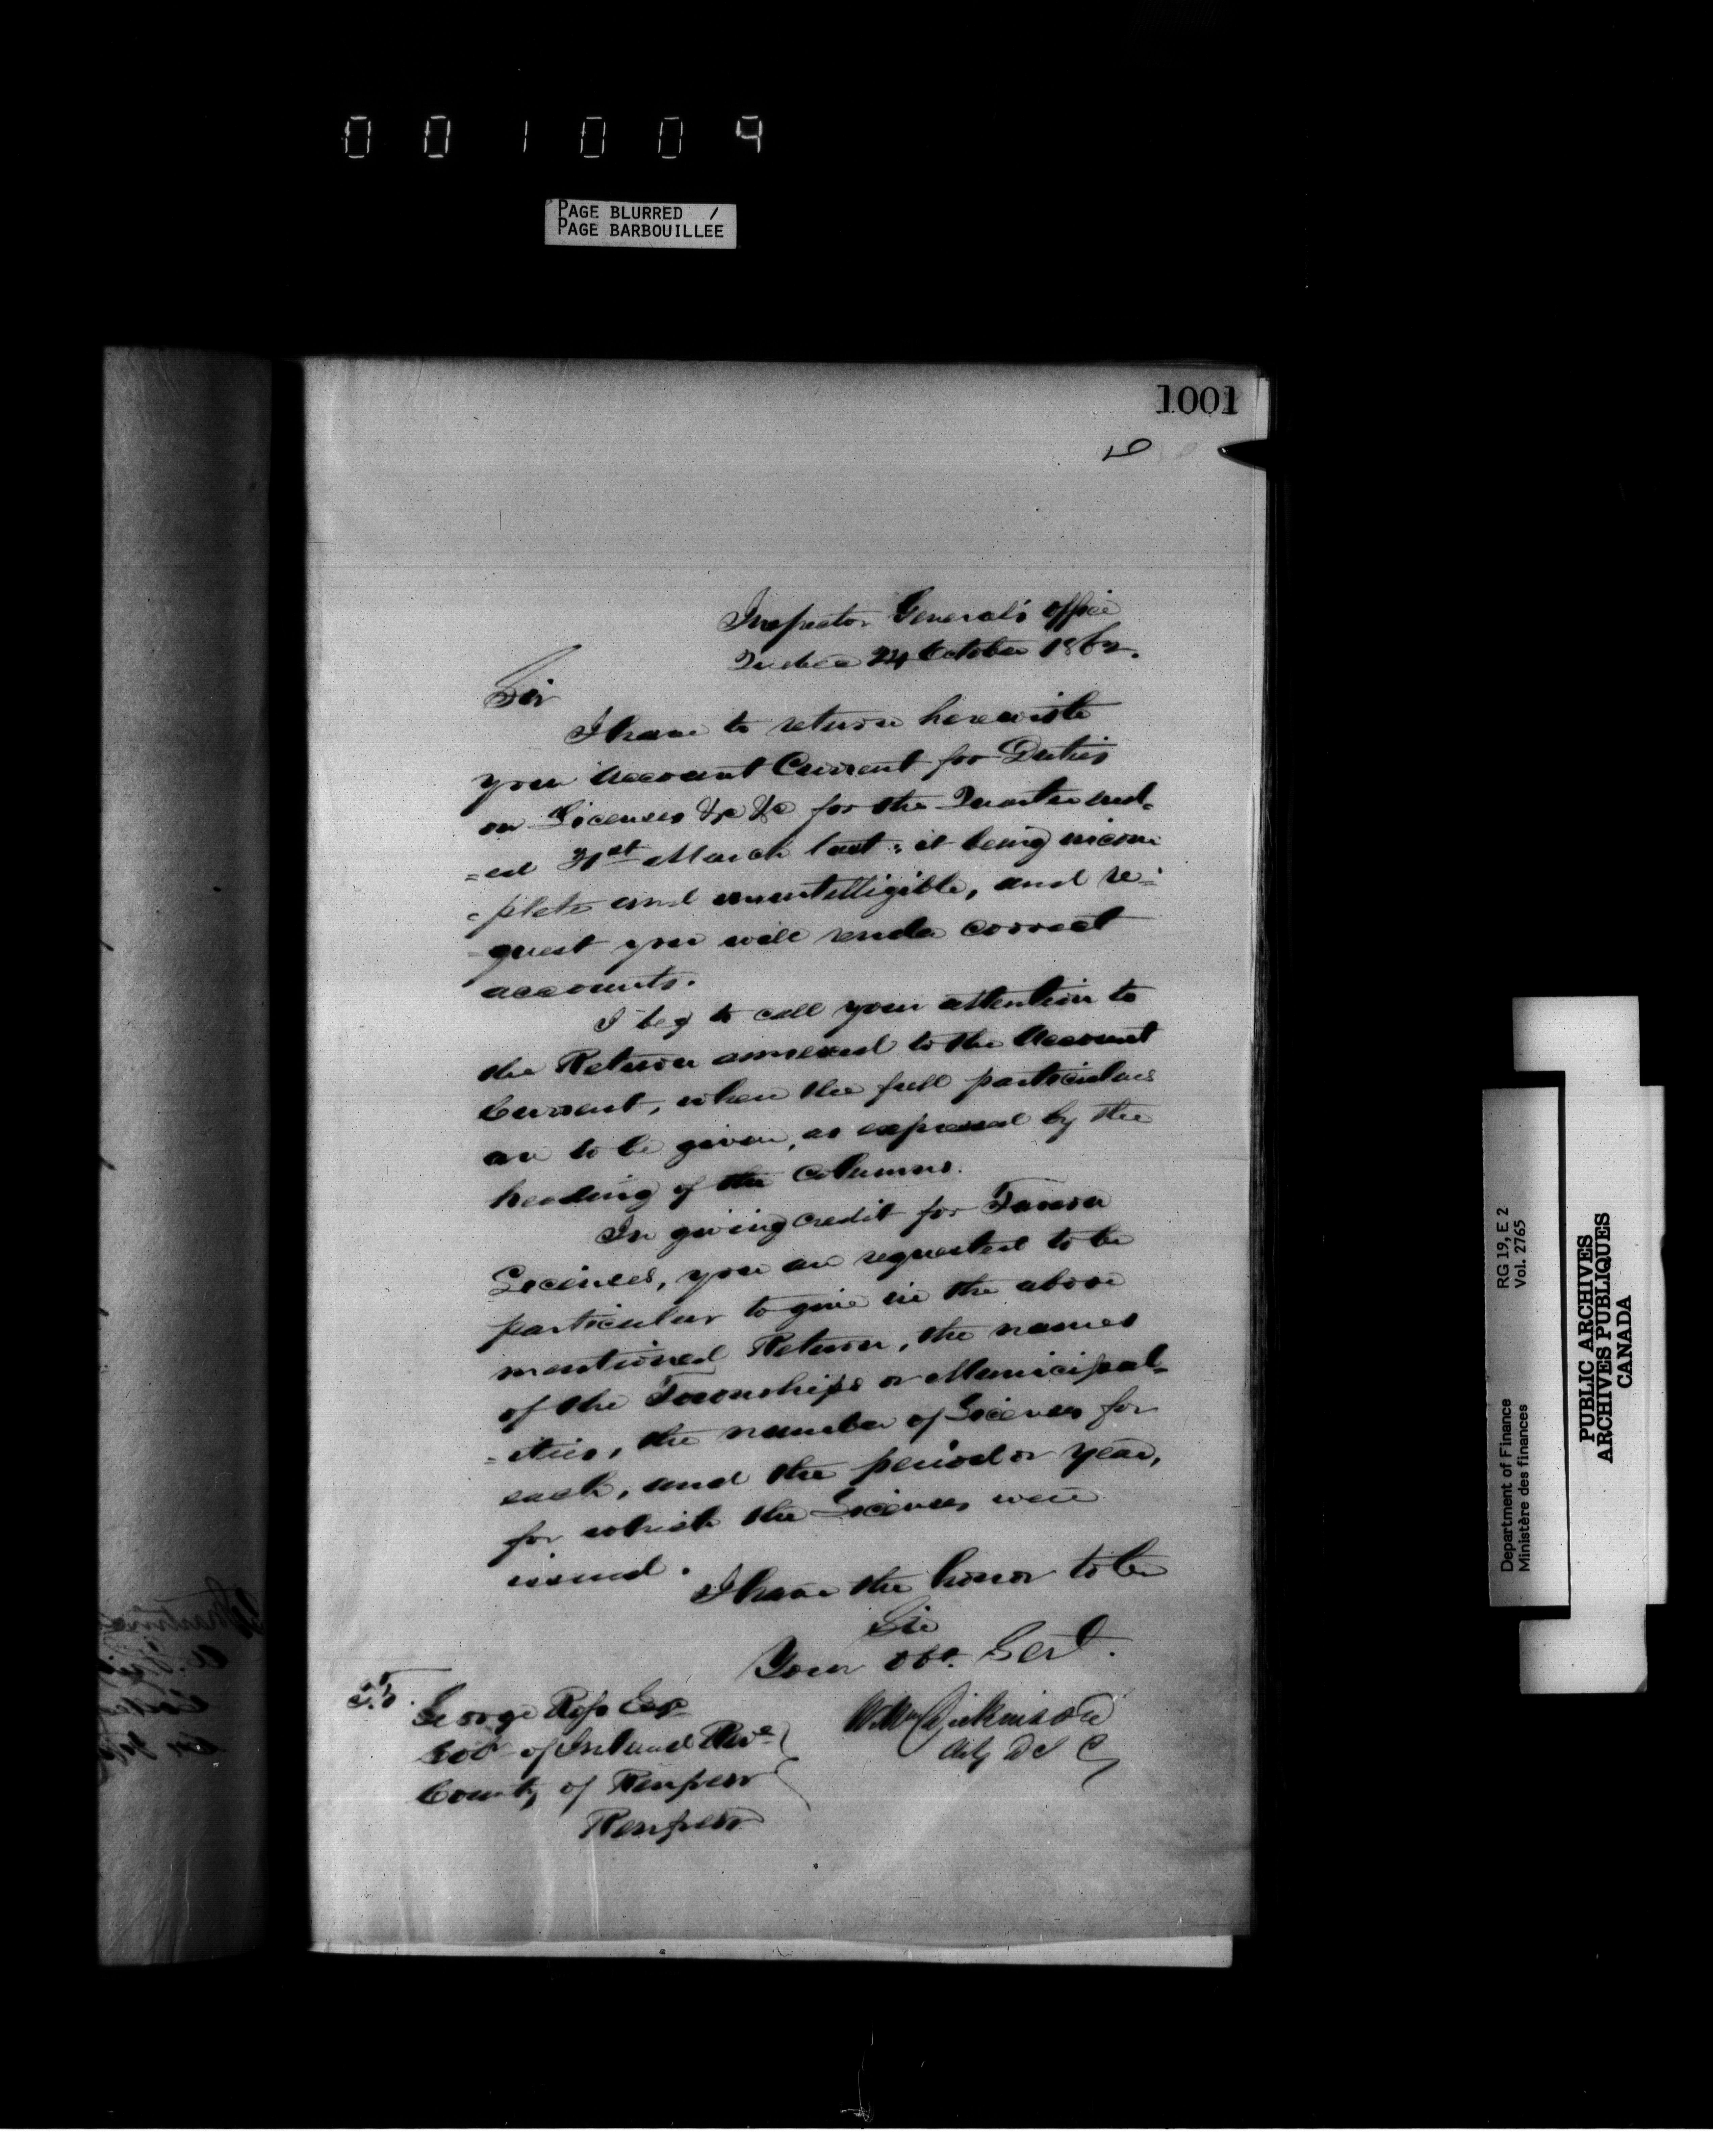 001009
PAGE BLURRED /
PAGE BARBOUILLEE
1001
Inspector General's office
Quebec 24 October 1862.
Sir
I have to return herewith
your Account Current for Duties
on Licenses &c &c for the Quarter end-
=ed 31st March last; it being incom
=plete and unintelligible, and re=
=quest you will render correct
accounts.
I beg to call your attention to
the Return annexed to the Account
Current, where the full particulars
are to be given, as expressed by the
heading of the Columns.
In giving credit for Tavern
Licenses, you are requested to be
particular to give in the above
mentioned Return, the names
of the Townships or Municipal-
=ities, the number of Licenses for
each, and the period or year,
for which the Licenses were
issued.
I have the honor to be
Sir
Your Obt. Servt.
Wm Dickinson
Actg D I G
George Ross Esqr
Colr of Inland Reve
County of Renfrew
Renfrew
RG 19, E 2
Vol. 2765
Department of Finance
Ministère des finances
PUBLIC ARCHIVES
ARCHIVES PUBLIQUES
CANADA